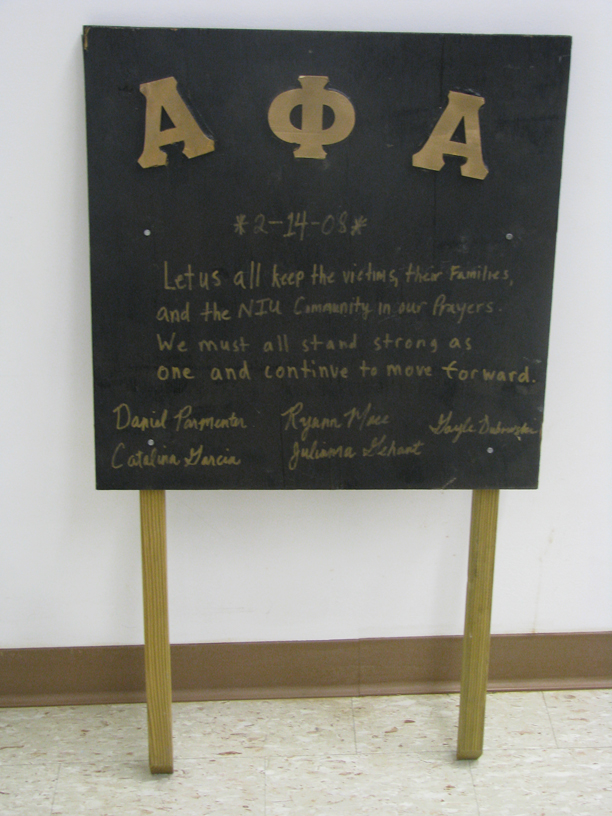 ΑΦΑ
*2-14-08*
Let us all keep the victims, their Families,
and the NIU Community in our Prayers.
We must all stand strong as
one and continue to move forward.
Daniel Parmenter Ryann Mace Gayle Dubowski
Catalina Garcia Julianna Gehant